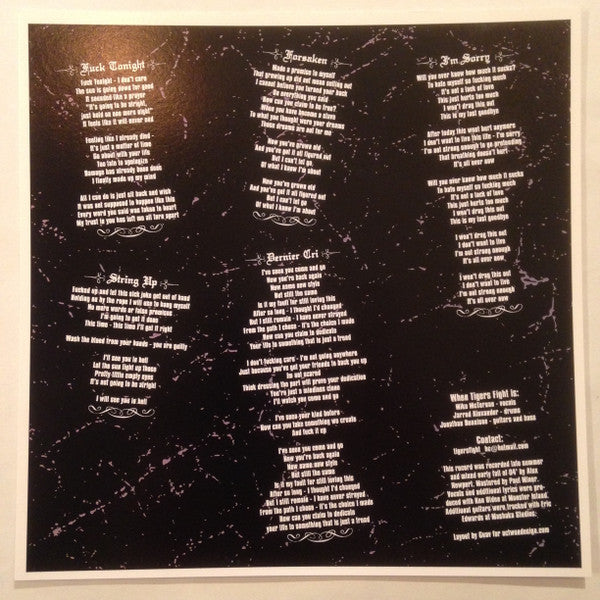 Fuck Tonight
Fuck Tonight - I don't care
The sun is going down for good
If sounded like a prayer
"It's going to be alright,
just hold on one more night"
It looks like it will never end
Feeling like I already died -
It's just a matter of time
Go about with your life
Too late to apologize
Damage has already been done
I finally made up my mind
All I can do is just sit back and wish
It was not supposed to happen like this
Every word you said was taken to heart
My trust in you has left me all torn apart
String Up
Fucked up and let this sick joke get out of hand
Holding on by the rope I will use to hang myself
No more words or false promises
I'm going to get it done
This time - this time I'll get it right
Wash the blood from your hands - you are guilty
I'll see you in hell
Let the sun light up those
Pretty little empty eyes
It's not going to be alright
I will see you in hell
Forsaken
Made a promise to myself
That growing up did not mean selling out
I cannot believe you turned your back
On everything you said
How can you claim to be true?
When you have become a slave
To what you thought were your dreams
Those dreams are not for me
Now you've grown old
And you've got it all figured out
But I can't let go
Of what I know I'm about
Now you've grown old
And you've got it all figured out
But I can't let go
Of what I know I'm about
Dernier Cri
I've seen you come and go
Now you're back again
Now same new style
But still the same
Is it my fault for still loving this
After so long - I thought I'd changed
But I still remain - I have never strayed
From the path I chose - It's the choice I made
How can you claim to dedicate
Your life to something that is just a trend
I don't fucking care - I'm not going anywhere
Just because you've got your friends to back you up
I'm not scared
Think dressing the part will prove your dedication
You're just a mindless clone
I'll watch you come and go
I've seen your kind before
How can you take something we create
And fuck it up
I've seen you come and go
Now you're back again
Now same new style
But still the same
Is it my fault for still loving this
After so long - I thought I'd changed
But I still remain - I have never strayed
From the path I chose - It's the choice I made
How can you claim to dedicate
your life to something that is just a trend
I'm Sorry
Will you ever know how much it sucks?
To hate myself so fucking much
It's not a lack of love
This just hurts too much
I won't drag this out
This is my last goodbye
After today this wont hurt anymore
I don't want to live this life - I'm sorry
I'm not strong enough to go pretending
That breathing doesn't hurt
It's all over now
Will you ever know how much it sucks
To hate myself so fucking much
It's not a lack of love
This just hurts too much
I won't drag this out
This is my last goodbye
I won't drag this out
I don't want to live
I'm not strong enough
It's all over now
I won't drag this out
I don't want to live
I'm not strong enough
It's all over now
When Tigers Fight is:
Mike McTernan - vocals
Jarrod Alexander - drums
Jonathan Buske - guitars and bass
Contact:
tigersfight_hc@hotmail.com
This record was recorded late summer
and mixed early fall of 04' by Alex
Newport. Mastered by Paul Miner.
Vocals and additional lyrics were pro-
duced with Ken Olden at Monster Island.
Additional guitars were tracked with Eric
Edwards at Mashaka Studios.
Layout by